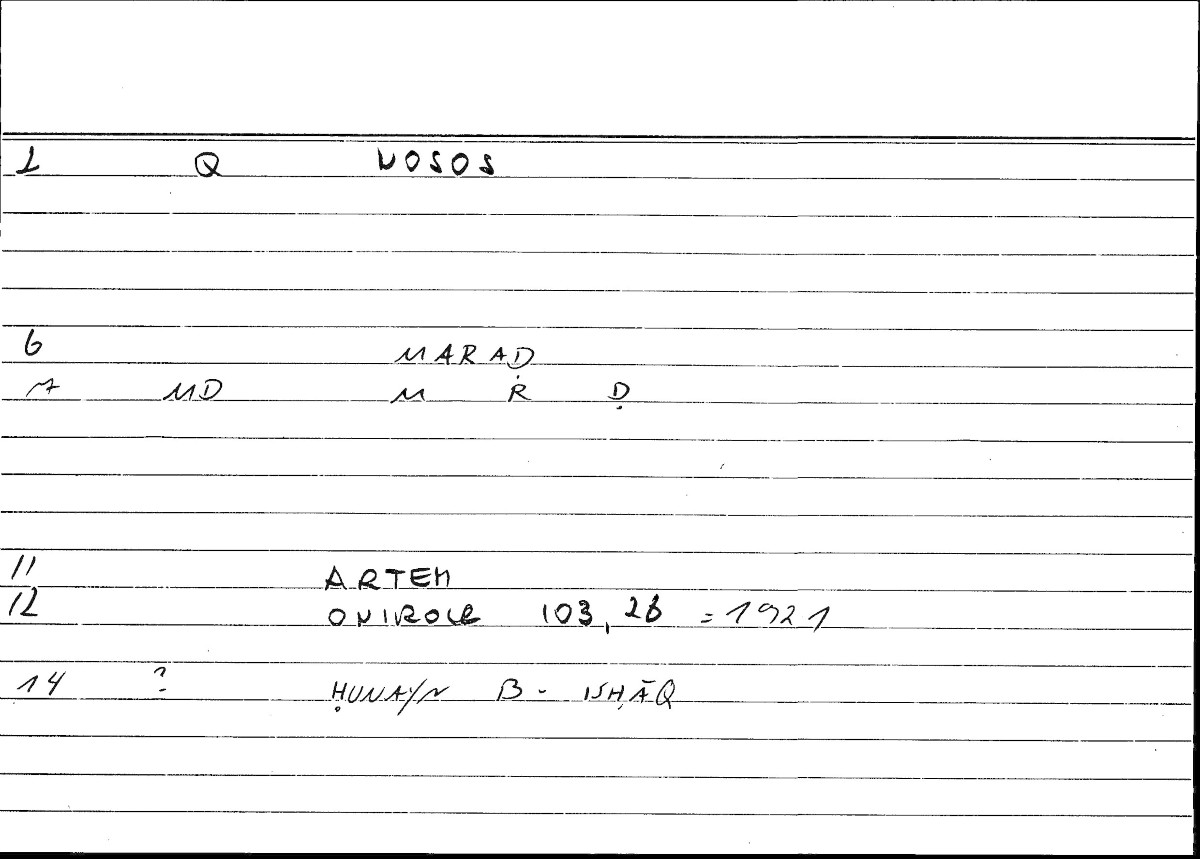 1 Q NOSOS
6 MARAḌ
7 MD M R Ḍ
11 ARTEM
12 ONIROCR 103,26 = 1921
14 ? ḤUNAYN B- ISḤĀQ